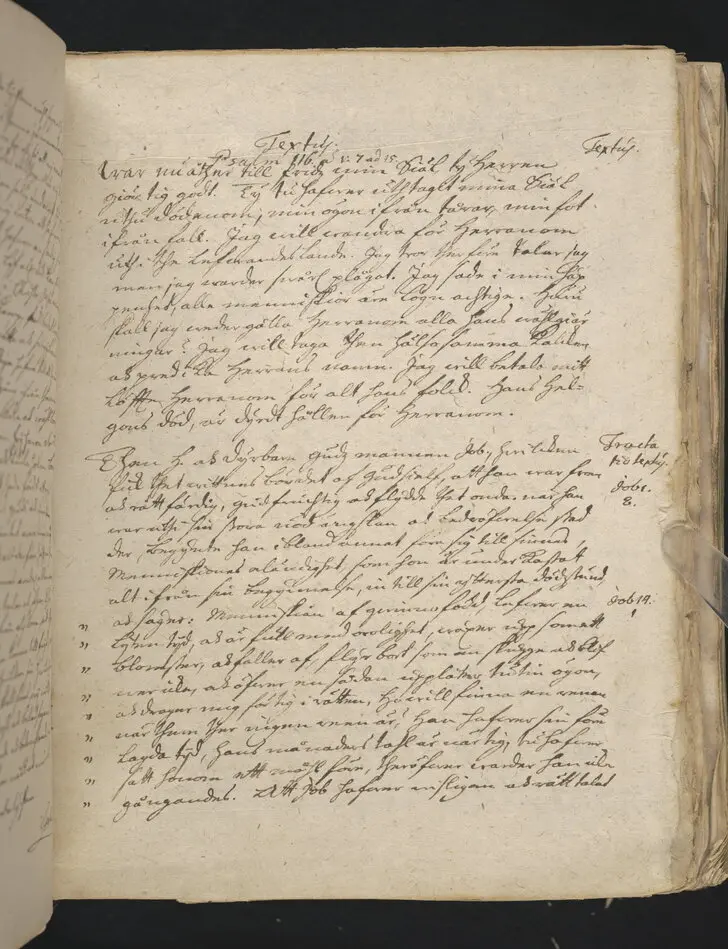 Textus.
Psalm 116. v: 7 ad 15.
Textus.
War nu åther till fridz min Siäl ty Herren
giör tig godt. Ty tu hafwer uttaget mina Siäl
uthu dödenom, min ögon ifrån tårar, min fot
ifrån fall. Jag will wandra för Herranom
uthi the lefwandes lande. Jag tror therföre talar jag
men jag warder swårl. plågat. Jag sade i min häp
penhet, alle menniskior äre lögn achtige. Huru
skall jag weder gälla Herranom alla hans wählgiär
ningar? Jag will taga then hälsosamma kalken
och predika Herrans namn. Jag will betala mitt
löffte Herranom för alt hans folck. Hans Hel-
gons död, är dyrdt hållen för Herranom.
Then H. ok dyrbare Gudz mannen Job, hwilcken
fick thet wittnes bördet af Gud sielf, att han war from
ok rättfärdig, gudfruchtig ok flydde thet onda. när han
Tracta
tio textus.
Job 1.
8.
war uthi sin stora nöd ångslan ok bedröfwelse stad
der, begynte han ibland annat föra sig till sinnes,
Menniskiones eländighet, som hon är under kastat
alt ifrån sin begynnelse, in till sin ytterste dödzstund,
ok säger: Menniskian af qwinno född, lefwer en
Job 14.
1
" liten tijd, ok är full med orolighet, wäxer upp som ett
" blomster, ok faller af, flyr bort som en skugge ok blif
" wer icke, ok öfwer en sådan uplåter tu tin ögon,
" ok drager mig för tig i rätten, Ho will finna en renan
" när them ther ingen reen är? Han hafwer sin före
" lagda tijd, hans månaders tahl är när tig, tu hafwer
" satt honom ett måhl före, theröfwer warder han icke
" gångandes. Att Job hafwer wisligen ok rätt talat